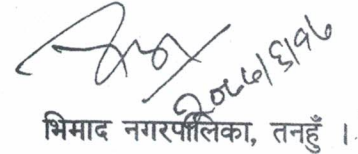 २०७७/६/१७
भिमाद नगरपालिका, तनहुँ ।